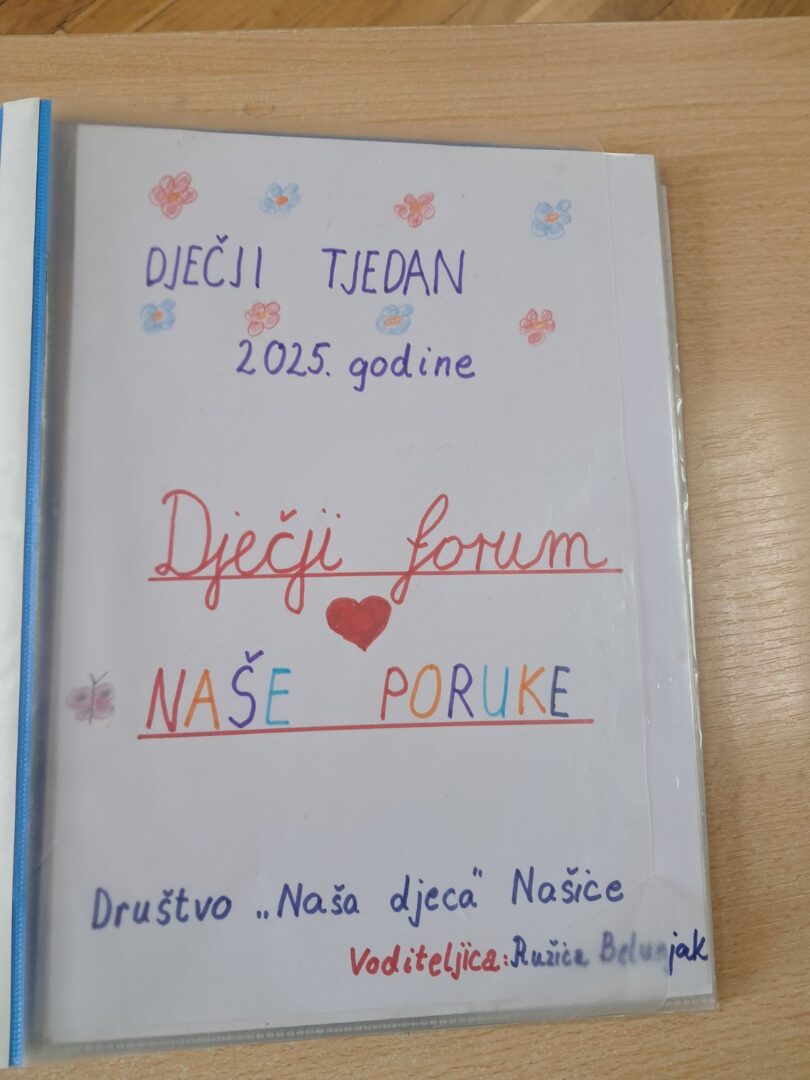 DJEČJI TJEDAN
2025. godine
Dječji forum
NAŠE PORUKE
Društvo „Naša djeca" Našice
Voditeljica: Ružica